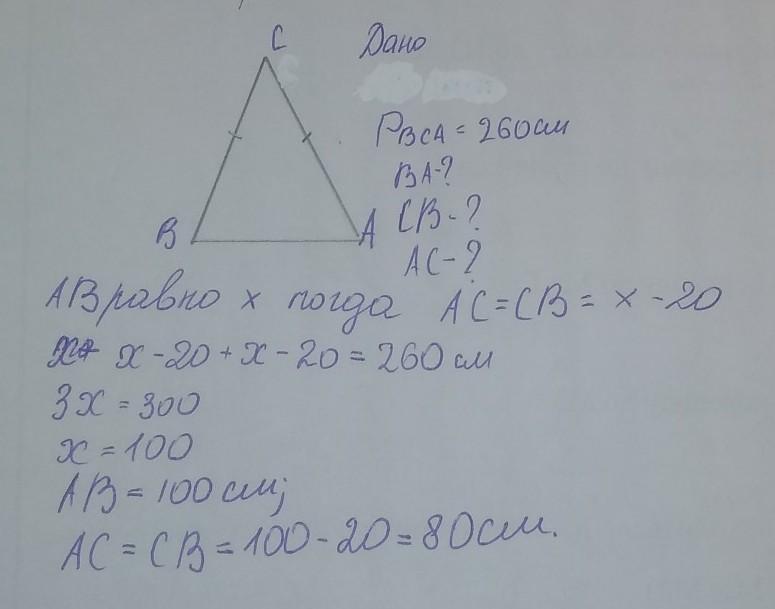 C
Дано
P BCA = 260 см
BA-?
B
A
CB-?
AC-?
AB равно x тогда AC=CB= x -20
x+ x -20 + x - 20 = 260 см
3x = 300
x = 100
AB = 100 см;
AC = CB = 100 - 20 = 80 см.